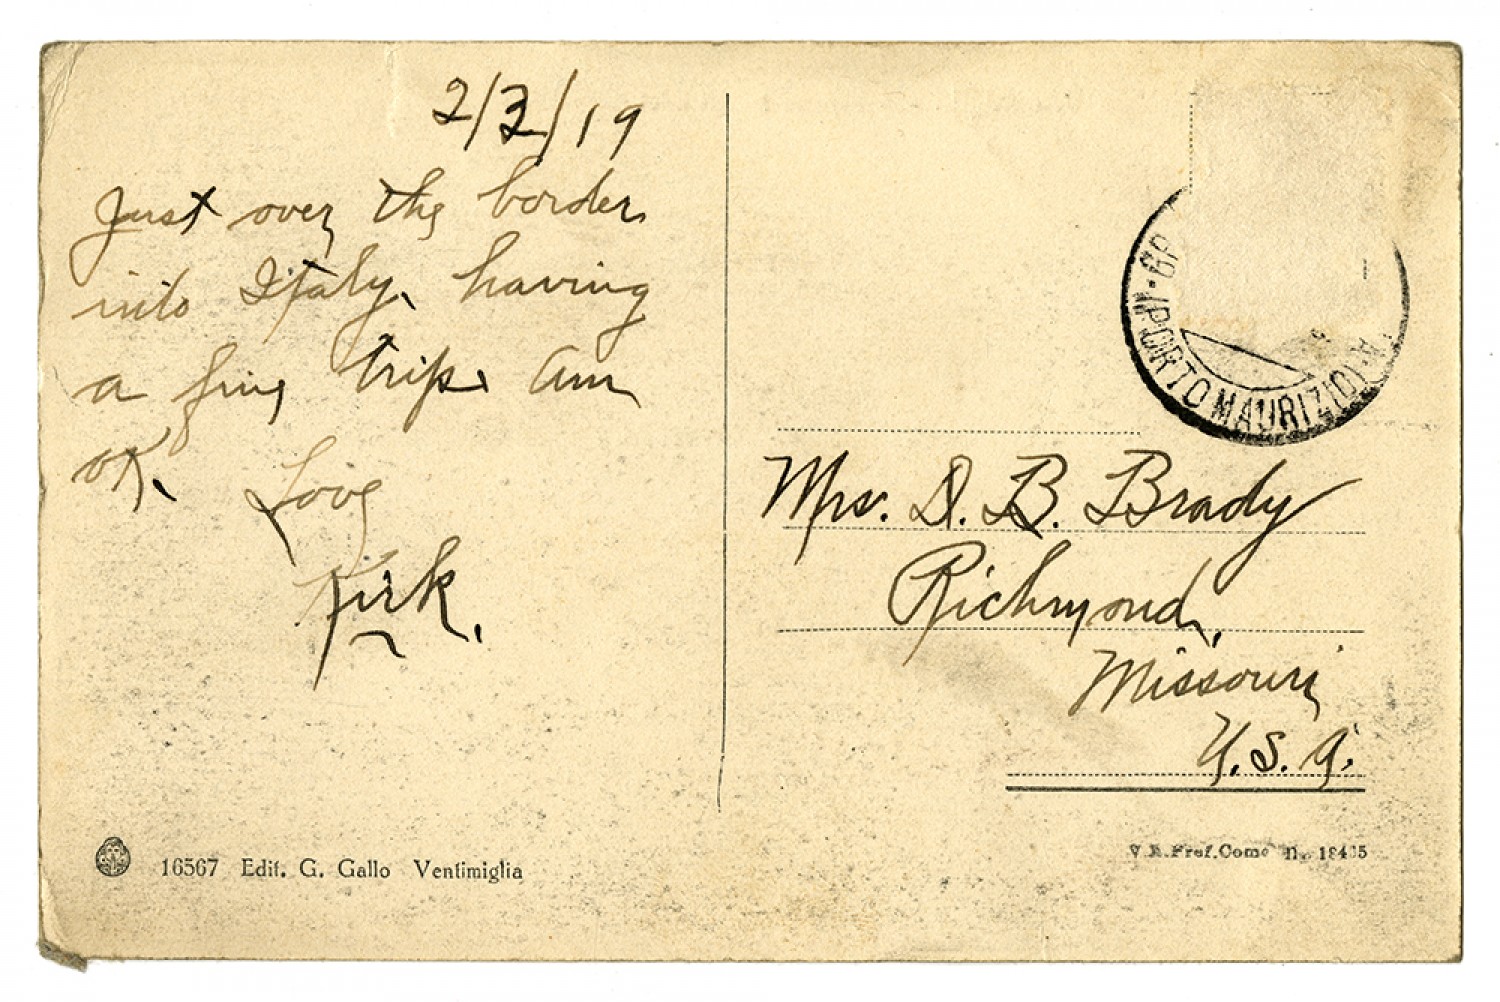 2/3/19
Just over the border
into Italy, having
a fine trip. Am
OK.
Love
Kirk.
PORTO MAURIZIO
Mrs. D. B. Brady
Richmond,
Missouri
U.S.A.
16567 Edit. G. Gallo Ventimiglia
Pref. Como